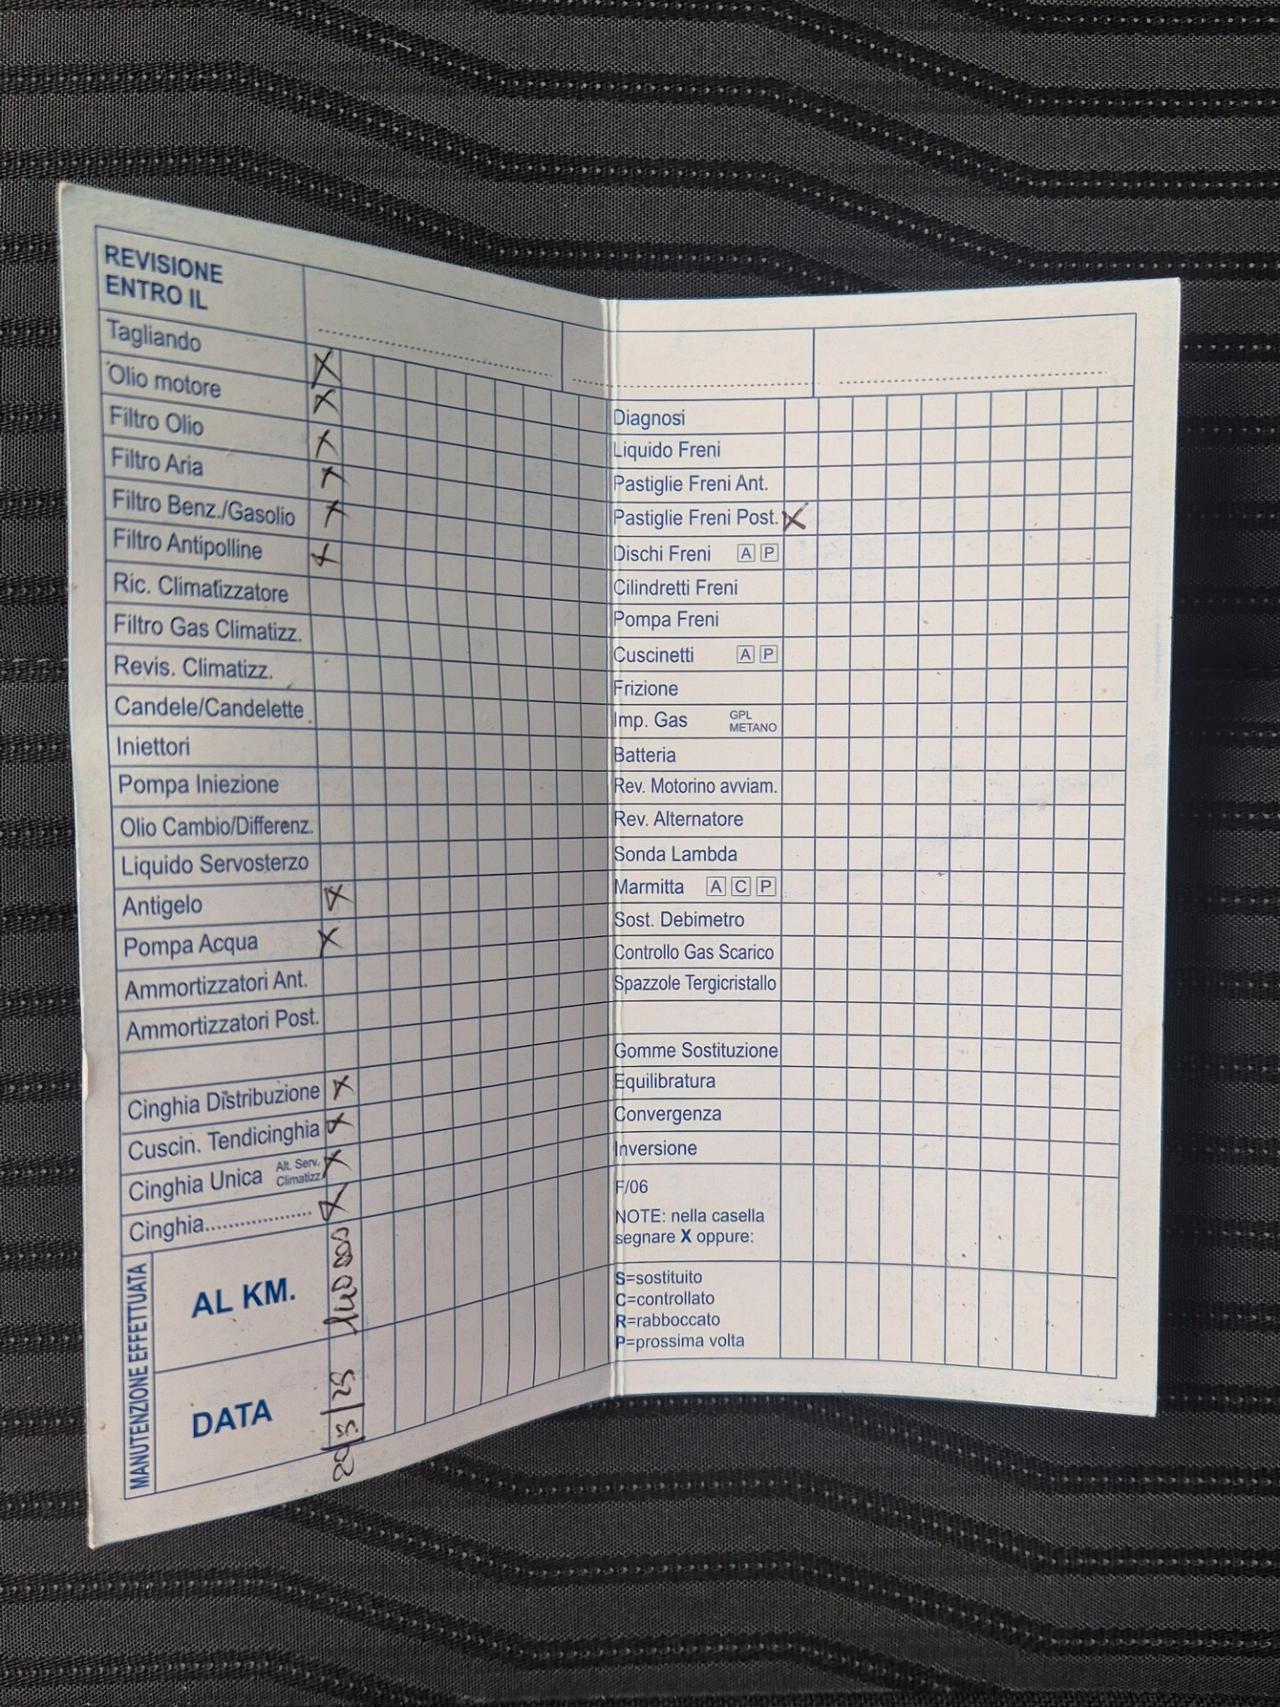 REVISIONE
ENTRO IL
Tagliando X
Olio motore X
Filtro Olio X
Filtro Aria X
Filtro Benz./Gasolio X
Filtro Antipolline X
Ric. Climatizzatore
Filtro Gas Climatizz.
Revis. Climatizz.
Candele/Candelette
Iniettori
Pompa Iniezione
Olio Cambio/Differenz.
Liquido Servosterzo
Antigelo X
Pompa Acqua X
Ammortizzatori Ant.
Ammortizzatori Post.
Cinghia Distribuzione X
Cuscin. Tendicinghia X
Cinghia Unica Alt. Serv. Climatizz. X
Cinghia.................. X
MANUTENZIONE EFFETTUATA
AL KM. 140000
DATA
Diagnosi
Liquido Freni
Pastiglie Freni Ant.
Pastiglie Freni Post. X
Dischi Freni A P
Cilindretti Freni
Pompa Freni
Cuscinetti A P
Frizione
Imp. Gas GPL METANO
Batteria
Rev. Motorino avviam.
Rev. Alternatore
Sonda Lambda
Marmitta A C P
Sost. Debimetro
Controllo Gas Scarico
Spazzole Tergicristallo
Gomme Sostituzione
Equilibratura
Convergenza
Inversione
F/06
NOTE: nella casella
segnare X oppure:
S=sostituito
C=controllato
R=rabboccato
P=prossima volta